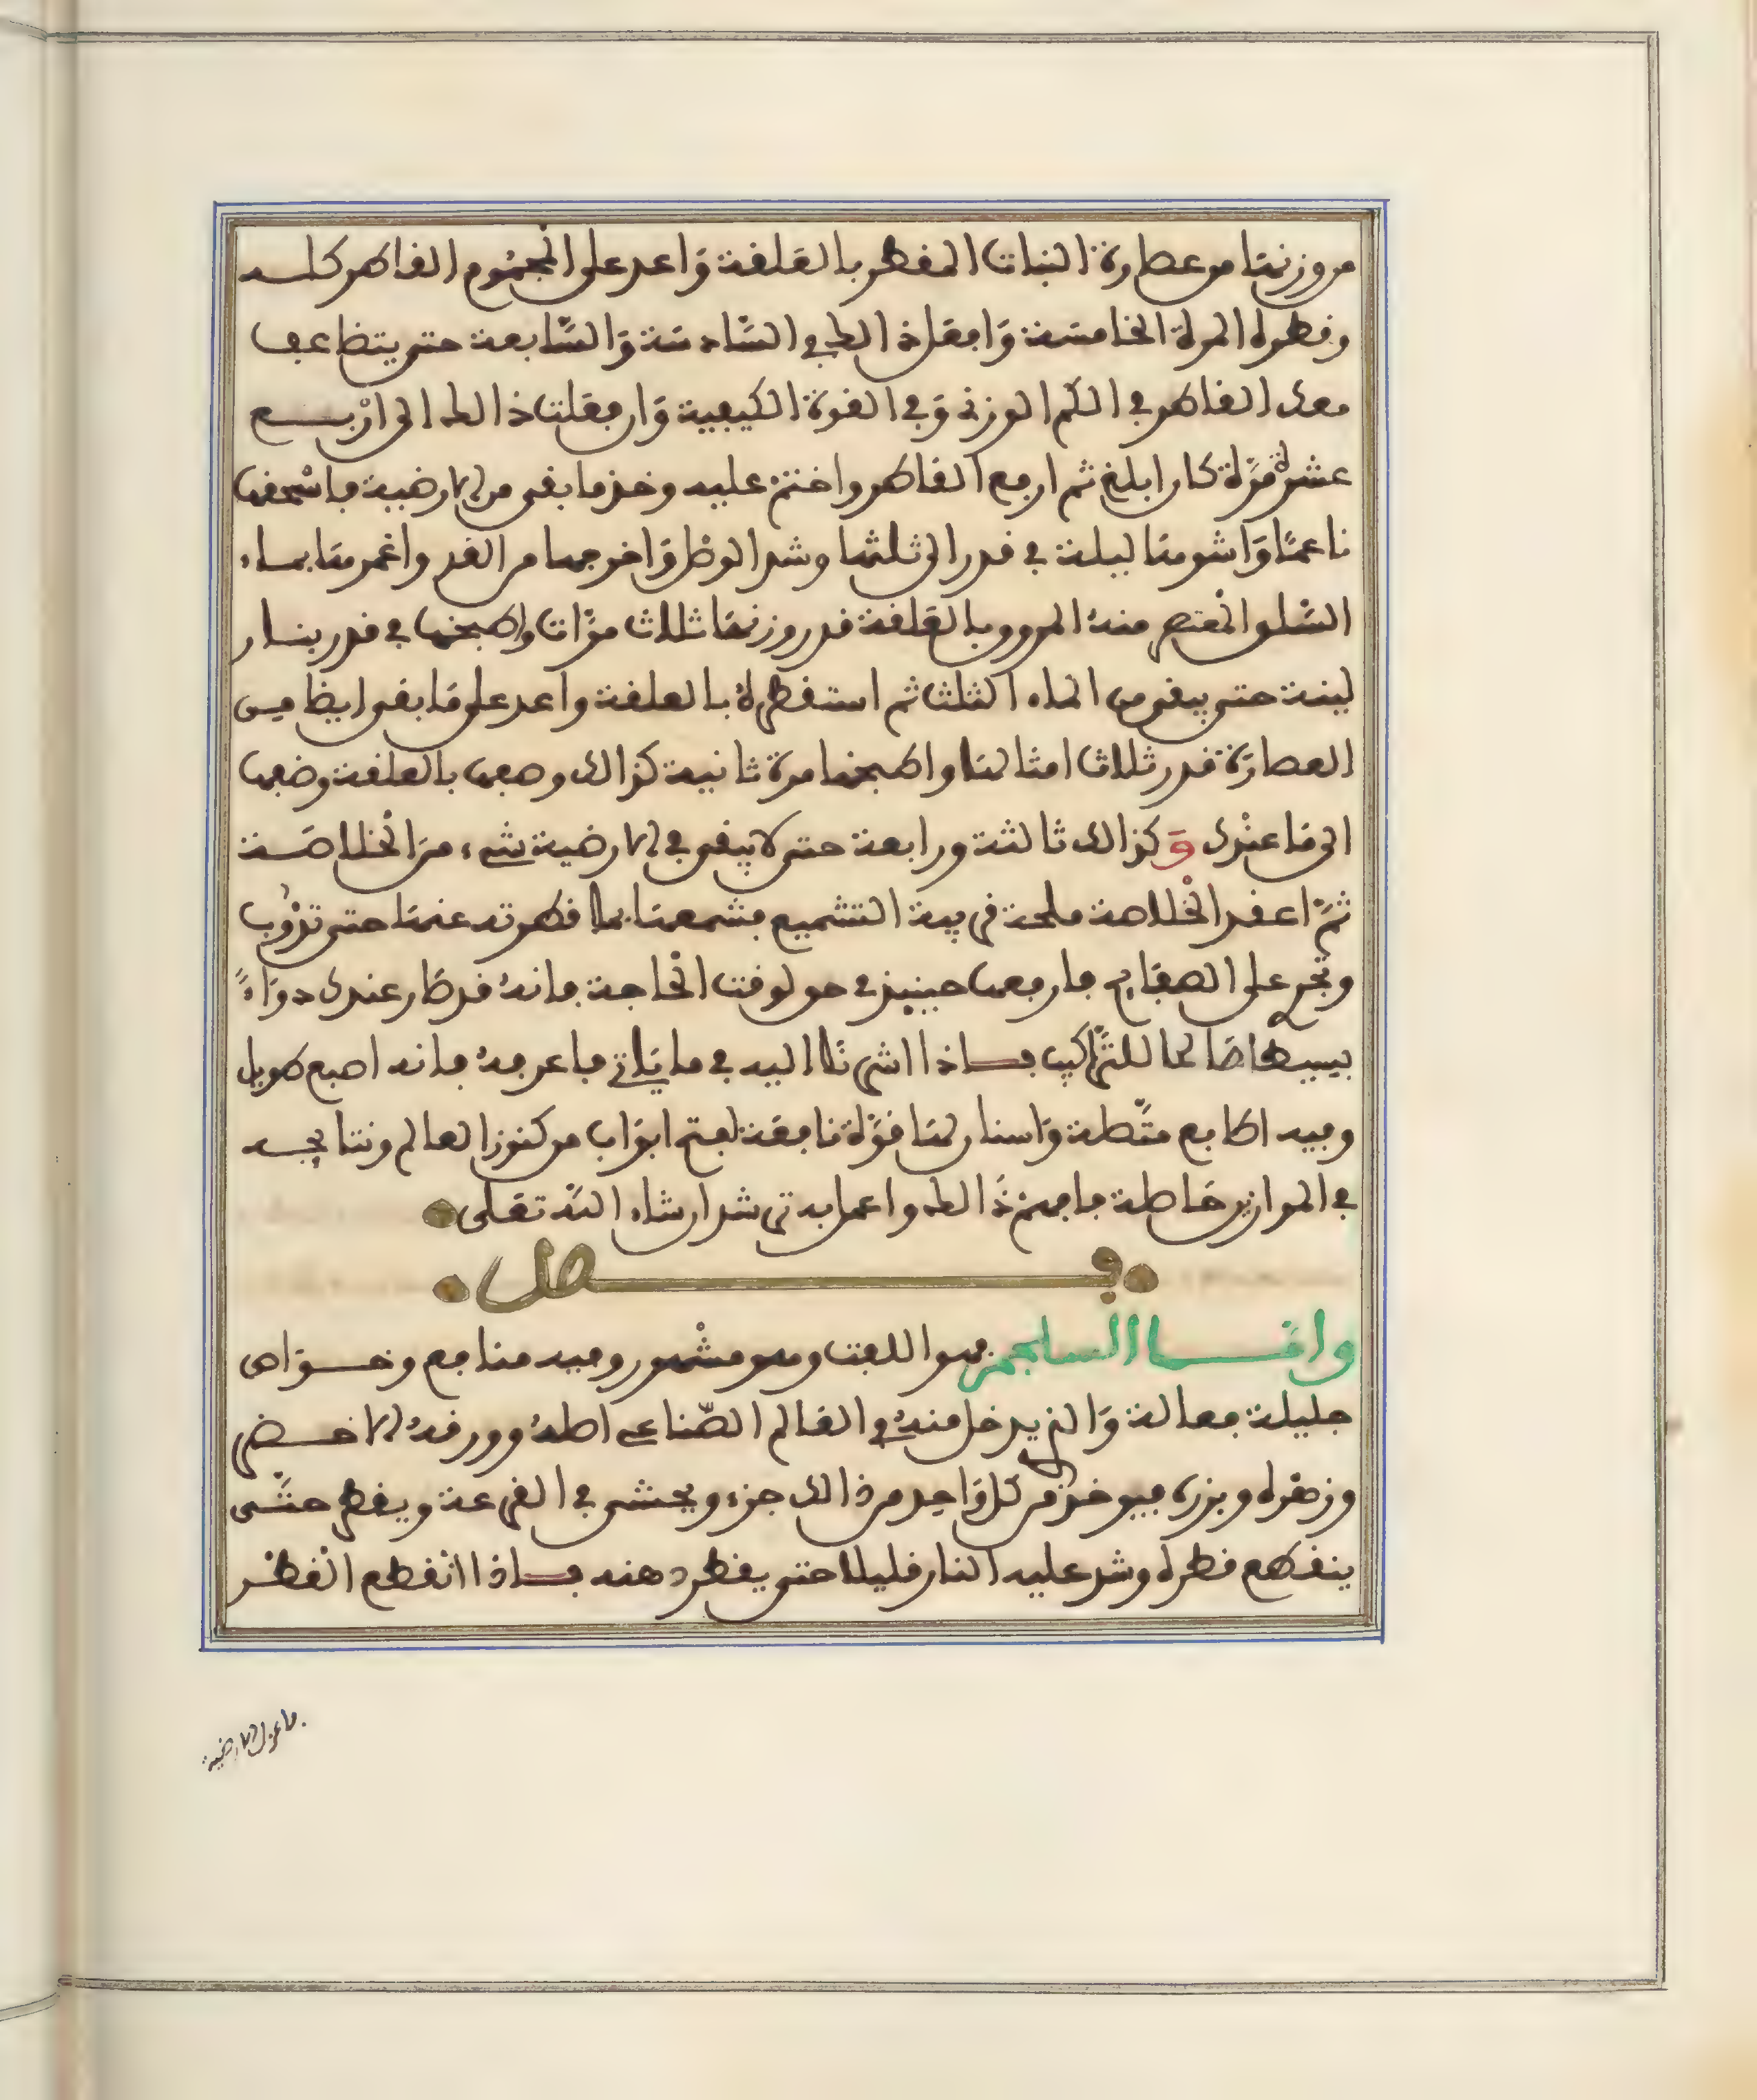 من وزنها من عصارة النبات المقطر بالعلقة وَاعد على المجموع القاطر كله
وقطره المرة الخامسَة وَافعَل ذالك في السَّادسَة وَالسَّابعة حتى يتضاعف
معك القاطر في الكم الوزني وَفي القوة الكيفية وَان فعَلت ذالك الى ارْبع
عشرة مرَّة كان ابلغ ثم ارفع القاطر واختم عليه وخذ ما بقي من الارضية فاسْحقها
ناعمًا وَاشوهَا ليلة في قدر الى ثلثها وشد الوصْل وَاخرجها من الغد واغمرهَا بماء
السّلق المعْتصر منهُ المروق بالعَلقة قدر وزنهَا ثلاث مرَّات واطبخها في قدر بنار
لينة حتى يبقى من الماء الثلث ثم استقطرهُ بالعلقة واعد على مَا بقي ايضا من
العصارَة قدر ثلاث امثالهَا واطبخها مرة ثانية كذالك وصفها بالعلقة وضفها
الى مَا عنْدك وَكذالك ثالثة ورابعة حتى لا يبقى في الارضية شيء منَ الخْلاصَة
ثمَّ اعقد الخْلاصة ملحة في بية التشميع فشمعهَا بما قطرته عنهَا حتى تذوُب
وتجري على الصفايح فارفعها حينيذ في حق لوقت الحْاجة فانهُ قد صَار عندك دوَاءً
بسيطا صَالحا للترَّاكيب فاذا اشرنا اليه في ما يَاتي فاعرفهُ فانه اصبع طويل
وفيه اصَابع متَّصلة وَاسنان لهَا قوَّة نافعَة لفتح ابوَاب من كنوز العالم ونتايجه
في الموازين حَاصلة فافهم ذَالك واعمل به ترشد ان شاء اللّه تعَلى
فصل
وامَّا السلجم فهو اللفت وهو مشْهور وفيه منافع وخوَاص
جليلة فعالة وَالذي يدخل منهُ في العَالم الصّناعي اصلهُ وورقهُ الاخضر
وزهْره وبزره فيوخذ من كل وَاحد من ذالك جزء ويحشى في القرعة ويقطر حتّى
ينقطع قطره وشد عليه النار قليلا حتى يقطر دهنه فاذا انْقطع القطْر
فاعزل الارضية